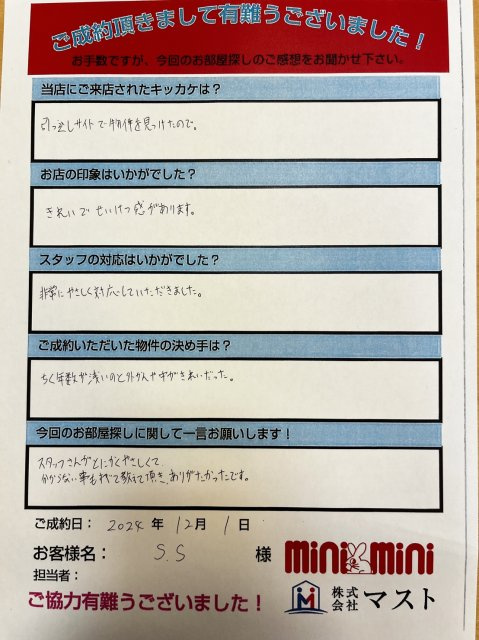 ご成約頂きまして有難うございました！
お手数ですが、今回のお部屋探しのご感想をお聞かせ下さい。
当店にご来店されたキッカケは？
引っ越しサイトで物件を見つけたので。
お店の印象はいかがでした？
きれいでせいけつ感があります。
スタッフの対応はいかがでした？
非常にやさしく対応していただきました。
ご成約いただいた物件の決め手は？
ちく年数が浅いのと外かんや中がきれいだった。
今回のお部屋探しに関して一言お願いします！
スタッフさんがとにかくやさしくて
分からない事も教えて頂き、ありがたかったです。
ご成約日： 2024 年 12月 1日
お客様名： S.S 様
mini mini
担当者：
株式会社 マスト
ご協力有難うございました！